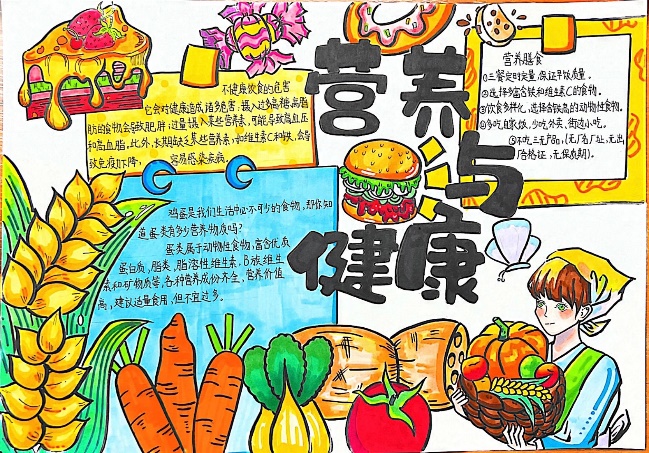 营养
与
健康
不健康饮食的危害
它会对健康造成诸多危害,摄入过多高糖、高脂
肪的食物会导致肥胖;过量摄入某些营养素,可能导致高血压
和高血脂。此外,长期缺乏某些营养素,如维生素C和铁,会导
致免疫力下降,容易感染疾病。
营养膳食
①三餐定时定量,保证早饭质量。
②选择多富含铁和维生素C的食物。
③饮食多样化,选择含铁高的动物性食物。
④多吃自家饭,少吃外卖、街边小吃。
⑤不吃三无产品,(无厂名厂址,无出
厂合格证,无保质期)。
鸡蛋是我们生活中必不可少的食物,那你知
道蛋类有多少营养物质吗?
蛋类属于动物性食物,富含优质
蛋白质,脂类,脂溶性维生素,B族维生
素和矿物质等,各种营养成份齐全,营养价值
高,建议适量食用,但不宜过多。